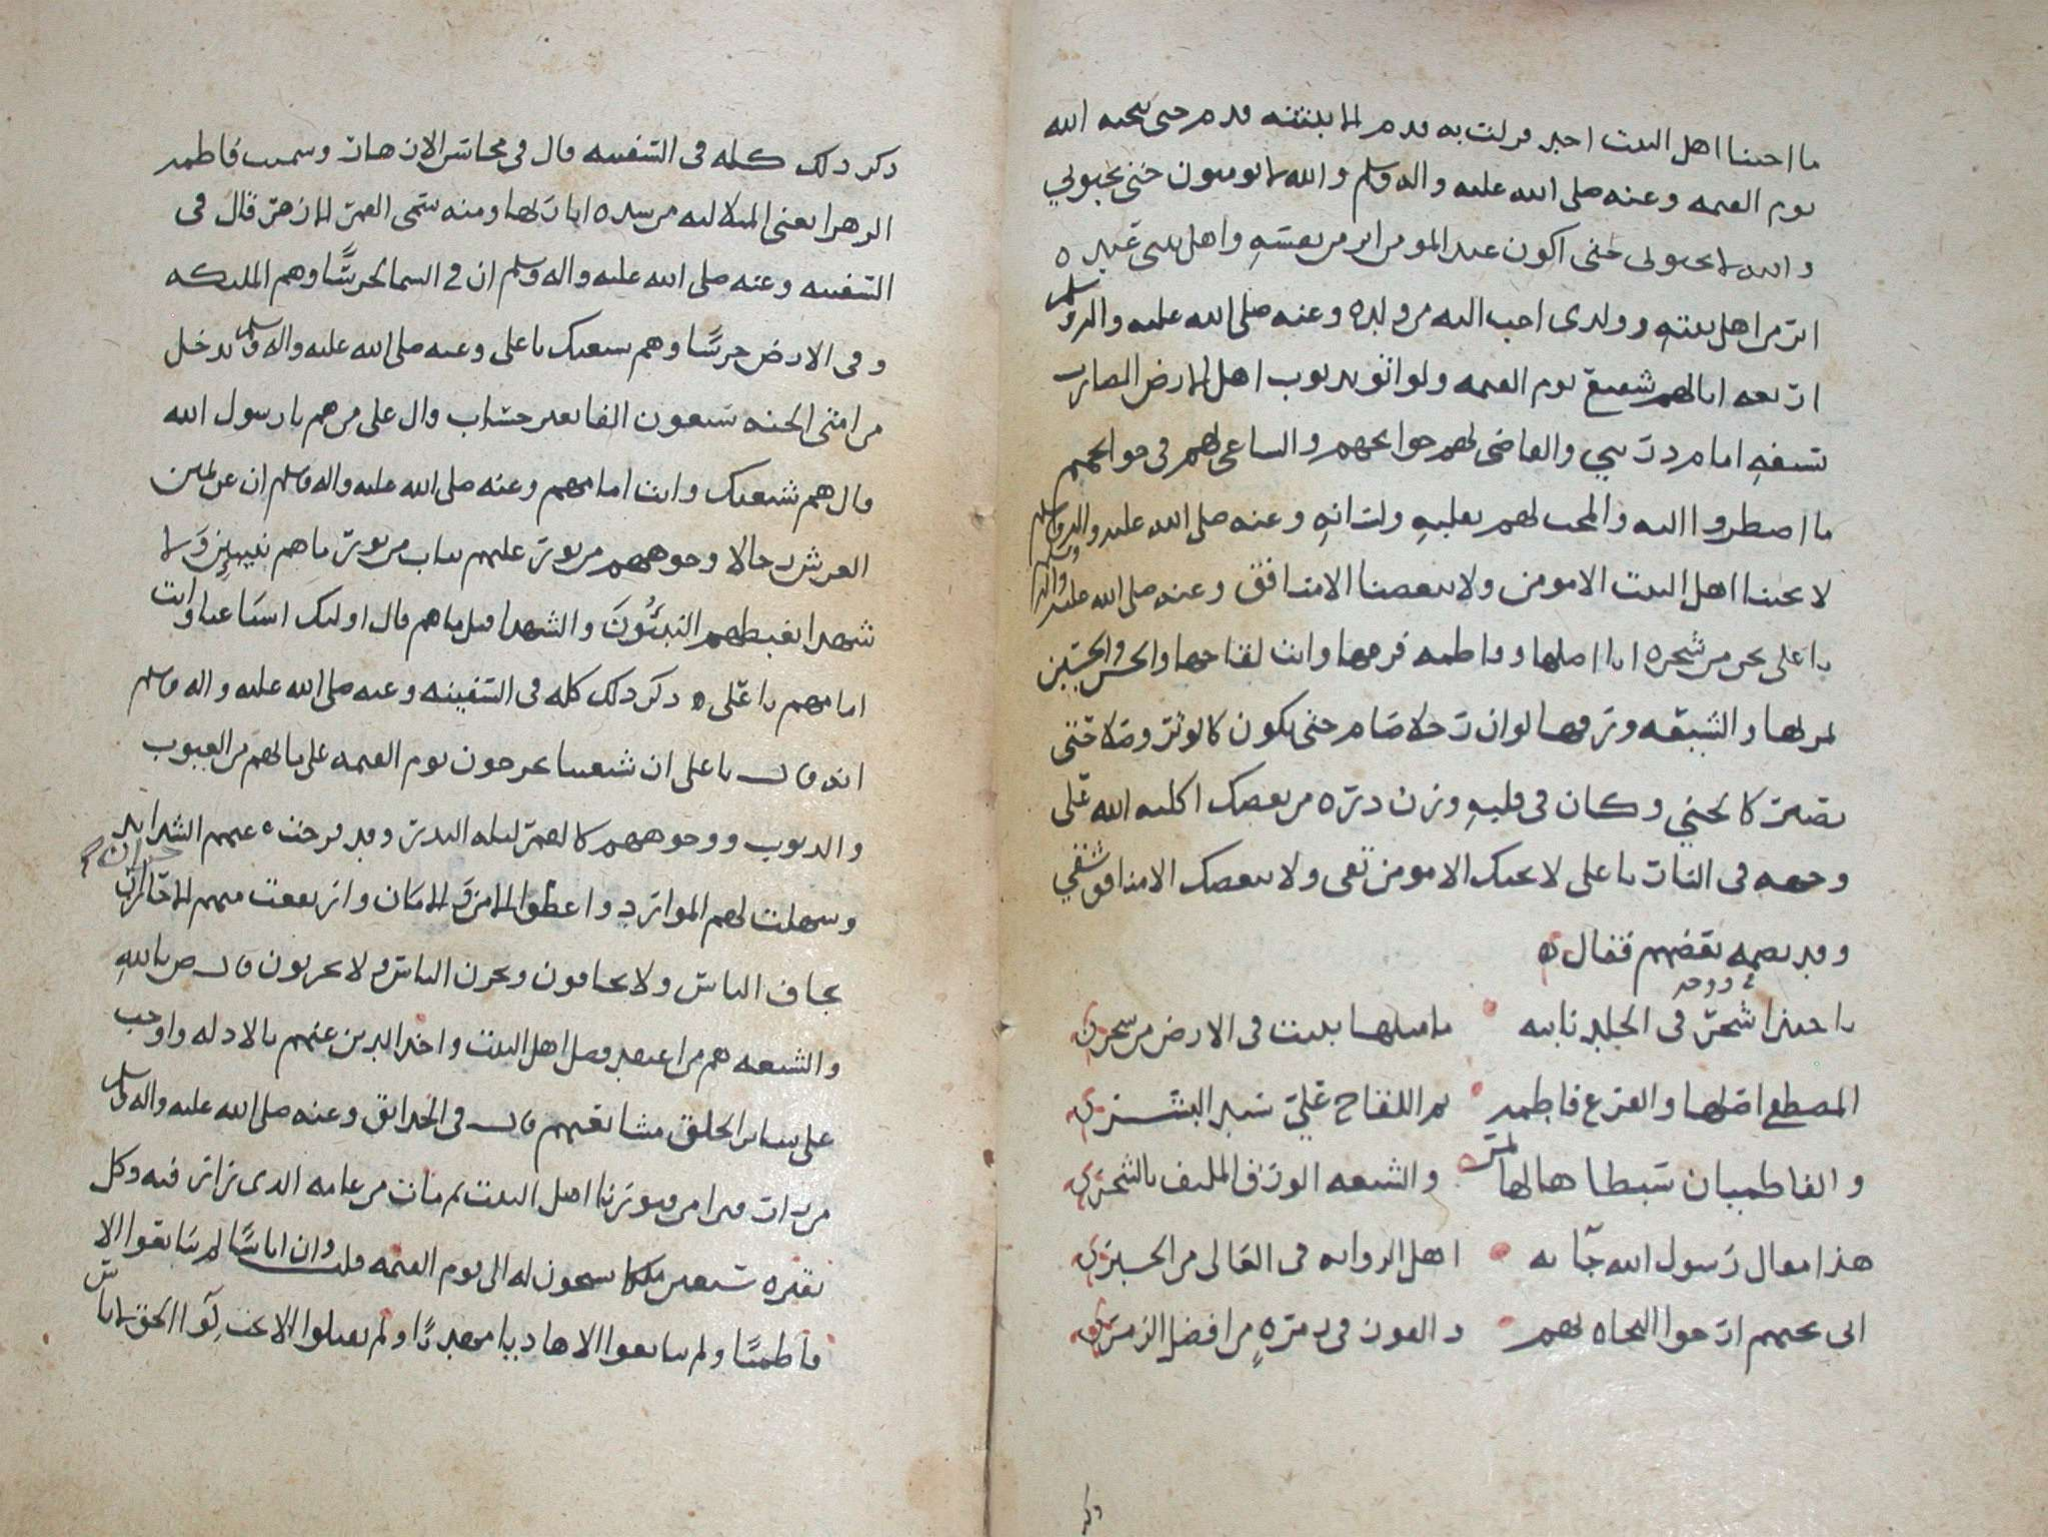 ما احبنا اهل البيت احد فزلت به قدم الا ثبتته قدم حتى ينجيه الله
يوم القيمه وعنه صلى الله عليه واله وسلم والله لا يومنون حتى يحبوني
والله لا يحبوني حتى اكون عند المومن ابر من نفسه واهل بيتي عنده
ابر من اهل بيته وولدي احب اليه من ولده وعنه صلى الله عليه واله وسلم
اربعه انا لهم شفيع يوم القيمه ولو اتو بذنوب اهل الارض الضارب
بسيفه امام ذريتي والقاضي لهم حوايجهم والساعي لهم في حوايجهم
ما اضطروا اليه والمحب لهم بقلبه ولسانه وعنه صلى الله عليه واله وسلم
لا يحبنا اهل البيت الا مومن ولا يبغضنا الا منافق وعنه صلى الله عليه واله وسلم
يا علي نحن من شجره انا اصلها وفاطمه فرعها وانت لقاحها والحسن والحسين
ثمرها والشيعه ورقها لو ان رجلا صام حتى يكون كالوتر وصلا حتى
يصير كالحني وكان في قلبه وزن ذره من بغضك اكبه الله على
وجهه في النار يا علي لا يحبك الا مومن تقي ولا يبغضك الا منافق شقي
وقد نظمه بعضهم فقال
يا حبذا شجر في الخلد نابته ما مثلها نبتت في الارض من شجر
في دوحه
المصطفى اصلها والفرع فاطمه ثم اللقاح علي سيد البشر
والفاطميان سبطاها لها ثمر والشيعه الورق الملتف بالشجر
هذا مقال رسول الله جا به اهل الروايه في العالي من الخبر
اني بحبهم ارجوا النجاه لهم والفوز في زمره من افضل الزمر
ذكر
ذكر ذلك كله في السفينه قال في محاسن الازهار وسميت فاطمه
الزهرا يعني المتلاليه من شده انارتها ومنه سمي القمر الازهر قال في
السفينه وعنه صلى الله عليه واله وسلم ان في السما حرسًا وهم المليكه
وفي الارض حرسًا وهم شيعتك يا علي وعنه صلى الله عليه واله وسلم يدخل
من امتي الجنه سبعون الفا بغير حساب قال علي من هم يا رسول الله
قال هم شيعتك وانت امامهم وعنه صلى الله عليه واله وسلم ان عن يمين
العرش رجالا وجوههم من نور عليهم ثياب من نور ما هم نبيين ولا
شهدا يغبطهم النبيون والشهدا قيل من هم قال اوليك اشياعنا وانت
امامهم يا علي ذكر ذلك كله في السفينه وعنه صلى الله عليه واله وسلم
انه قال يا علي ان شيعتنا يخرجون يوم القيمه على ما لهم من العيوب
والذنوب ووجوههم كالقمر ليله البدر وقد فرجت عنهم الشدايد
وسهلت لهم الموارد واعطوا الامن والامان وارتفعت عنهم الاحزان
يخاف الناس ولا يخافون ويحزن الناس ولا يحزنون قال ص بالله
والشيعه هم من اعتقد فضل اهل البيت واخذ الدين عنهم بالادله واوجب
على ساير الخلق مشايعتهم قال في الحدايق وعنه صلى الله عليه واله وسلم
من زار قبرا من قبورنا اهل البيت ثم مات من عامه الذي زار فيه وكل
بقبره سبعين ملكا يسبحون له الى يوم القيمه قلت وان اناسًا لم يتابعوا الا
فاطميًا ولم يتابعوا الا هاديا مهديًا ولم يقبلوا الا الحق لاناس